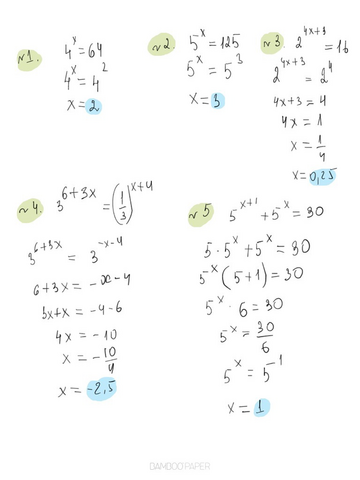 №1.
4^x = 64
4^x = 4^2
x = 2
№2
5^x = 125
5^x = 5^3
x = 3
№3. 2^{4x+3} = 16
2^{4x+3} = 2^4
4x+3 = 4
4x = 1
x = 1/4
x = 0,25
№4. 3^{6+3x} = (1/3)^{x+4}
3^{6+3x} = 3^{-x-4}
6+3x = -x-4
3x+x = -4-6
4x = -10
x = -10/4
x = -2,5
№5 5^{x+1} + 5^x = 30
5·5^x + 5^x = 30
5^x (5+1) = 30
5^x · 6 = 30
5^x = 30/6
5^x = 5^1
x = 1
BAMBOO PAPER